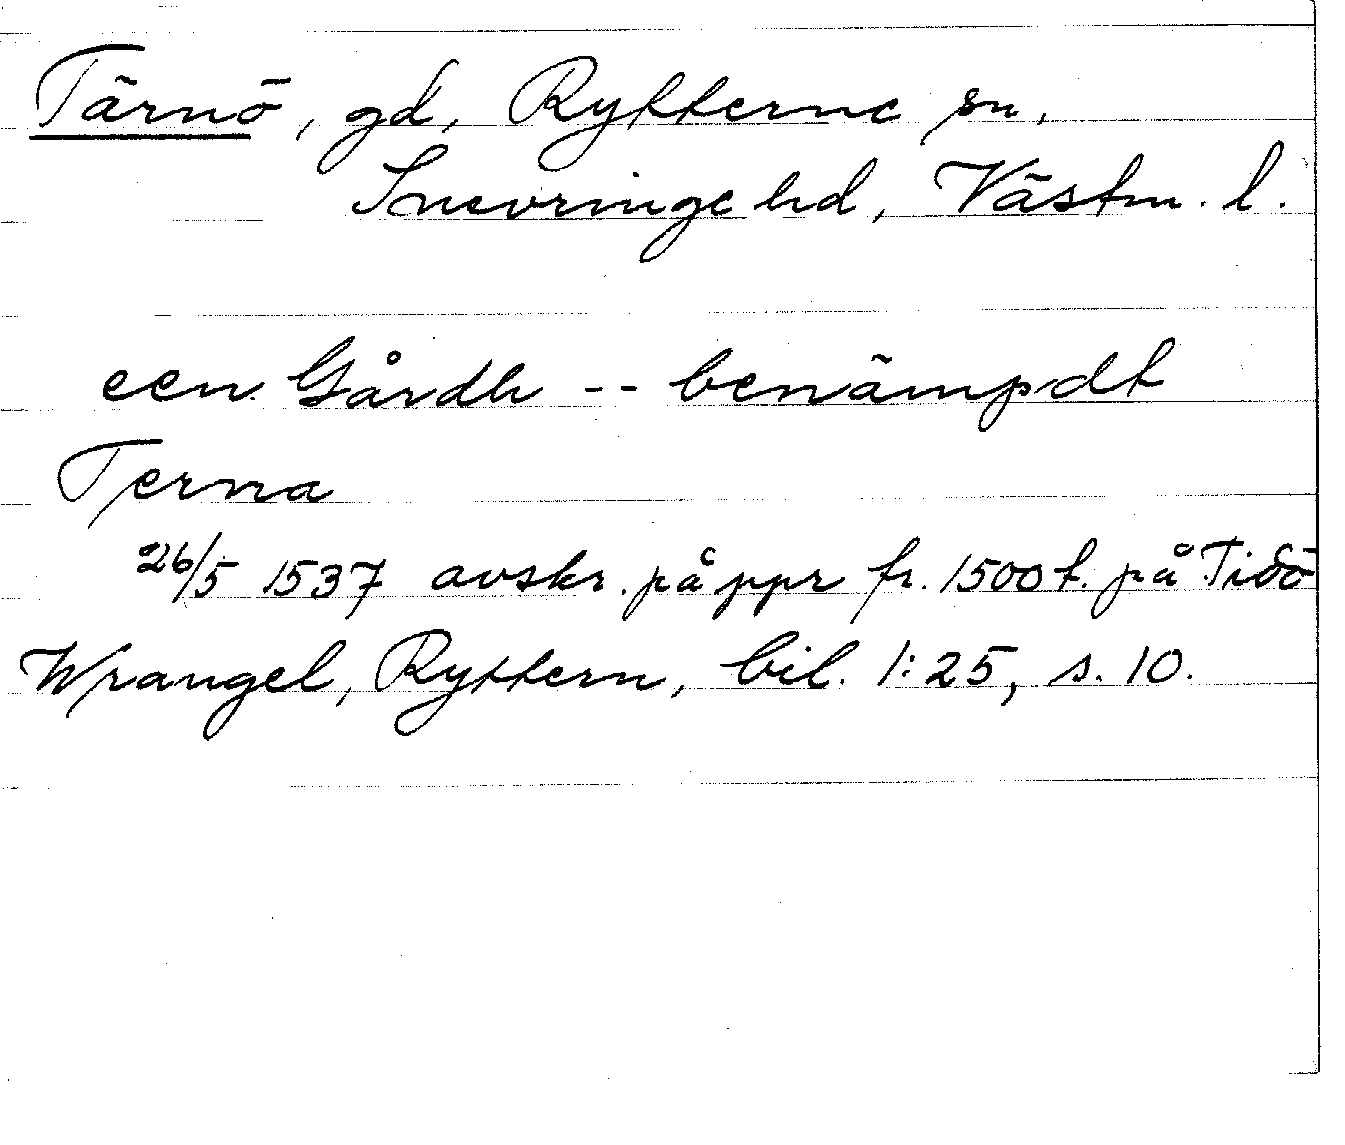 Tärnö, gd, Rytterne sn,
Snevringe hd, Västm. l.
een Gårdh -- benämpdt
Terna
26/5 1537 avskr. på ppr fr. 1500 t. på Tidö
Wrangel, Ryttern, bil. 1:25, s. 10.